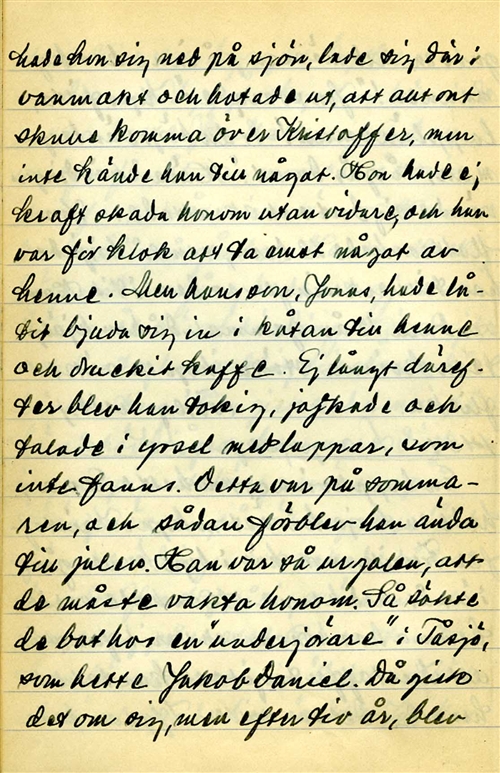 hade hon sig ned på sjön, lade sig där i
vanmakt och hotade ut, att allt ont
skulle komma över Kristoffer, men
inte kände han till något. Hon hade ej
kraft skada honom utan vidare, och han
var för klok att ta emot något av
henne. Men hans son, Jonas, hade lå-
tit bjuda sig in i kåtan till henne
och druckit kaffe. Ej långt däref-
ter blev han tokig, jojkade och
talade i yrsel med lappar, som
inte fanns. Detta var på somma-
ren, och sådan förblev han ända
till julen. Han var så urgalen, att
de måste vakta honom. Så sökte
de bot hos en "underjörare" i Tåsjö,
som hette Jakob Daniel. Då gick
det om sig, men efter tio år, blev